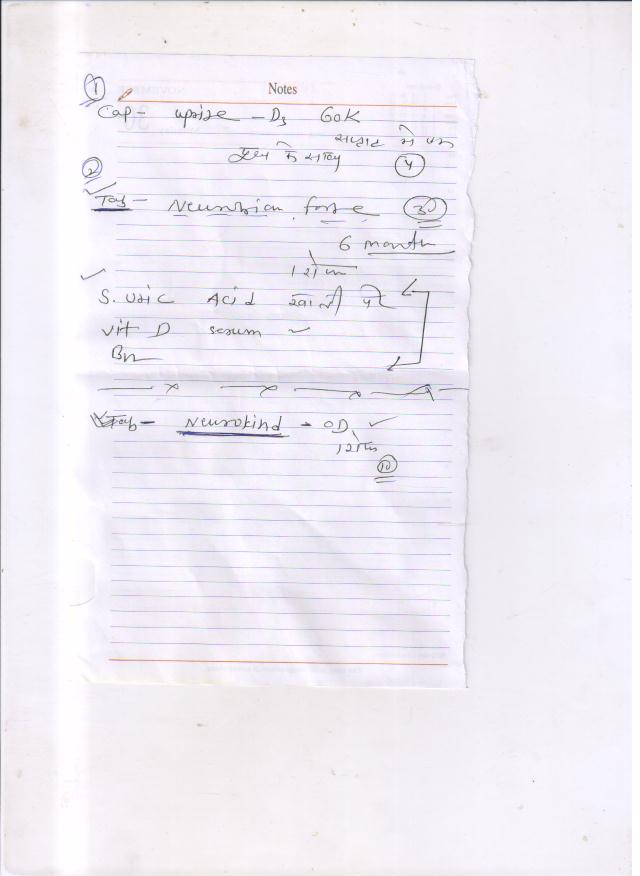 Notes
①
Cap- uprise - D3 60K
सप्ताह में एक
दूध के साथ ④
②
Tab- Neurobion forte 30
6 month
S. Uric Acid खाली पेट
vit D serum
B12
Tab- Neurokind - OD
10